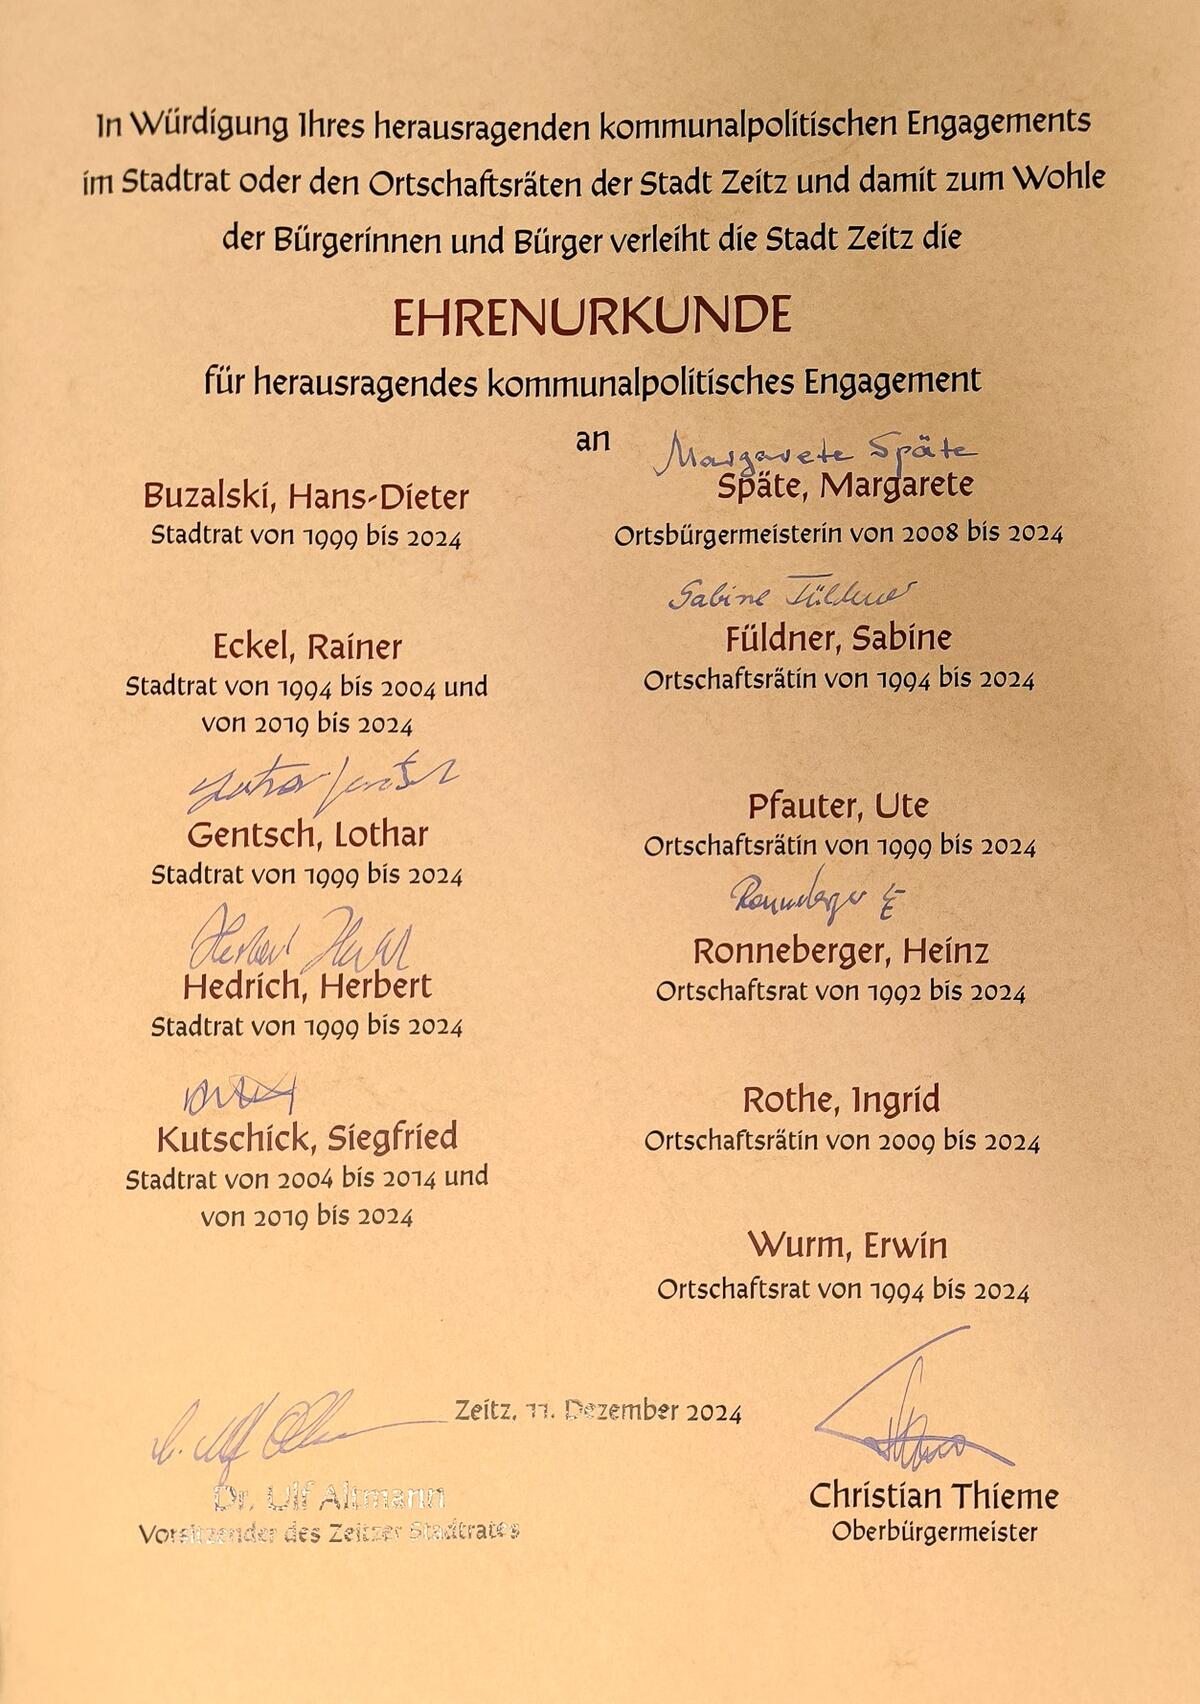 In Würdigung Ihres herausragenden kommunalpolitischen Engagements
im Stadtrat oder den Ortschaftsräten der Stadt Zeitz und damit zum Wohle
der Bürgerinnen und Bürger verleiht die Stadt Zeitz die
EHRENURKUNDE
für herausragendes kommunalpolitisches Engagement
an
Buzalski, Hans-Dieter
Stadtrat von 1999 bis 2024
Eckel, Rainer
Stadtrat von 1994 bis 2004 und
von 2019 bis 2024
Lothar Gentsch
Gentsch, Lothar
Stadtrat von 1999 bis 2024
Herbert
Hedrich, Herbert
Stadtrat von 1999 bis 2024
Kutschick, Siegfried
Stadtrat von 2004 bis 2014 und
von 2019 bis 2024
Margarete Späte
Späte, Margarete
Ortsbürgermeisterin von 2008 bis 2024
Sabine Füldner
Füldner, Sabine
Ortschaftsrätin von 1994 bis 2024
Pfauter, Ute
Ortschaftsrätin von 1999 bis 2024
Ronneberger
Ronneberger, Heinz
Ortschaftsrat von 1992 bis 2024
Rothe, Ingrid
Ortschaftsrätin von 2009 bis 2024
Wurm, Erwin
Ortschaftsrat von 1994 bis 2024
Zeitz, 11. Dezember 2024
Dr. Ulf Altmann
Vorsitzender des Zeitzer Stadtrates
Christian Thieme
Oberbürgermeister